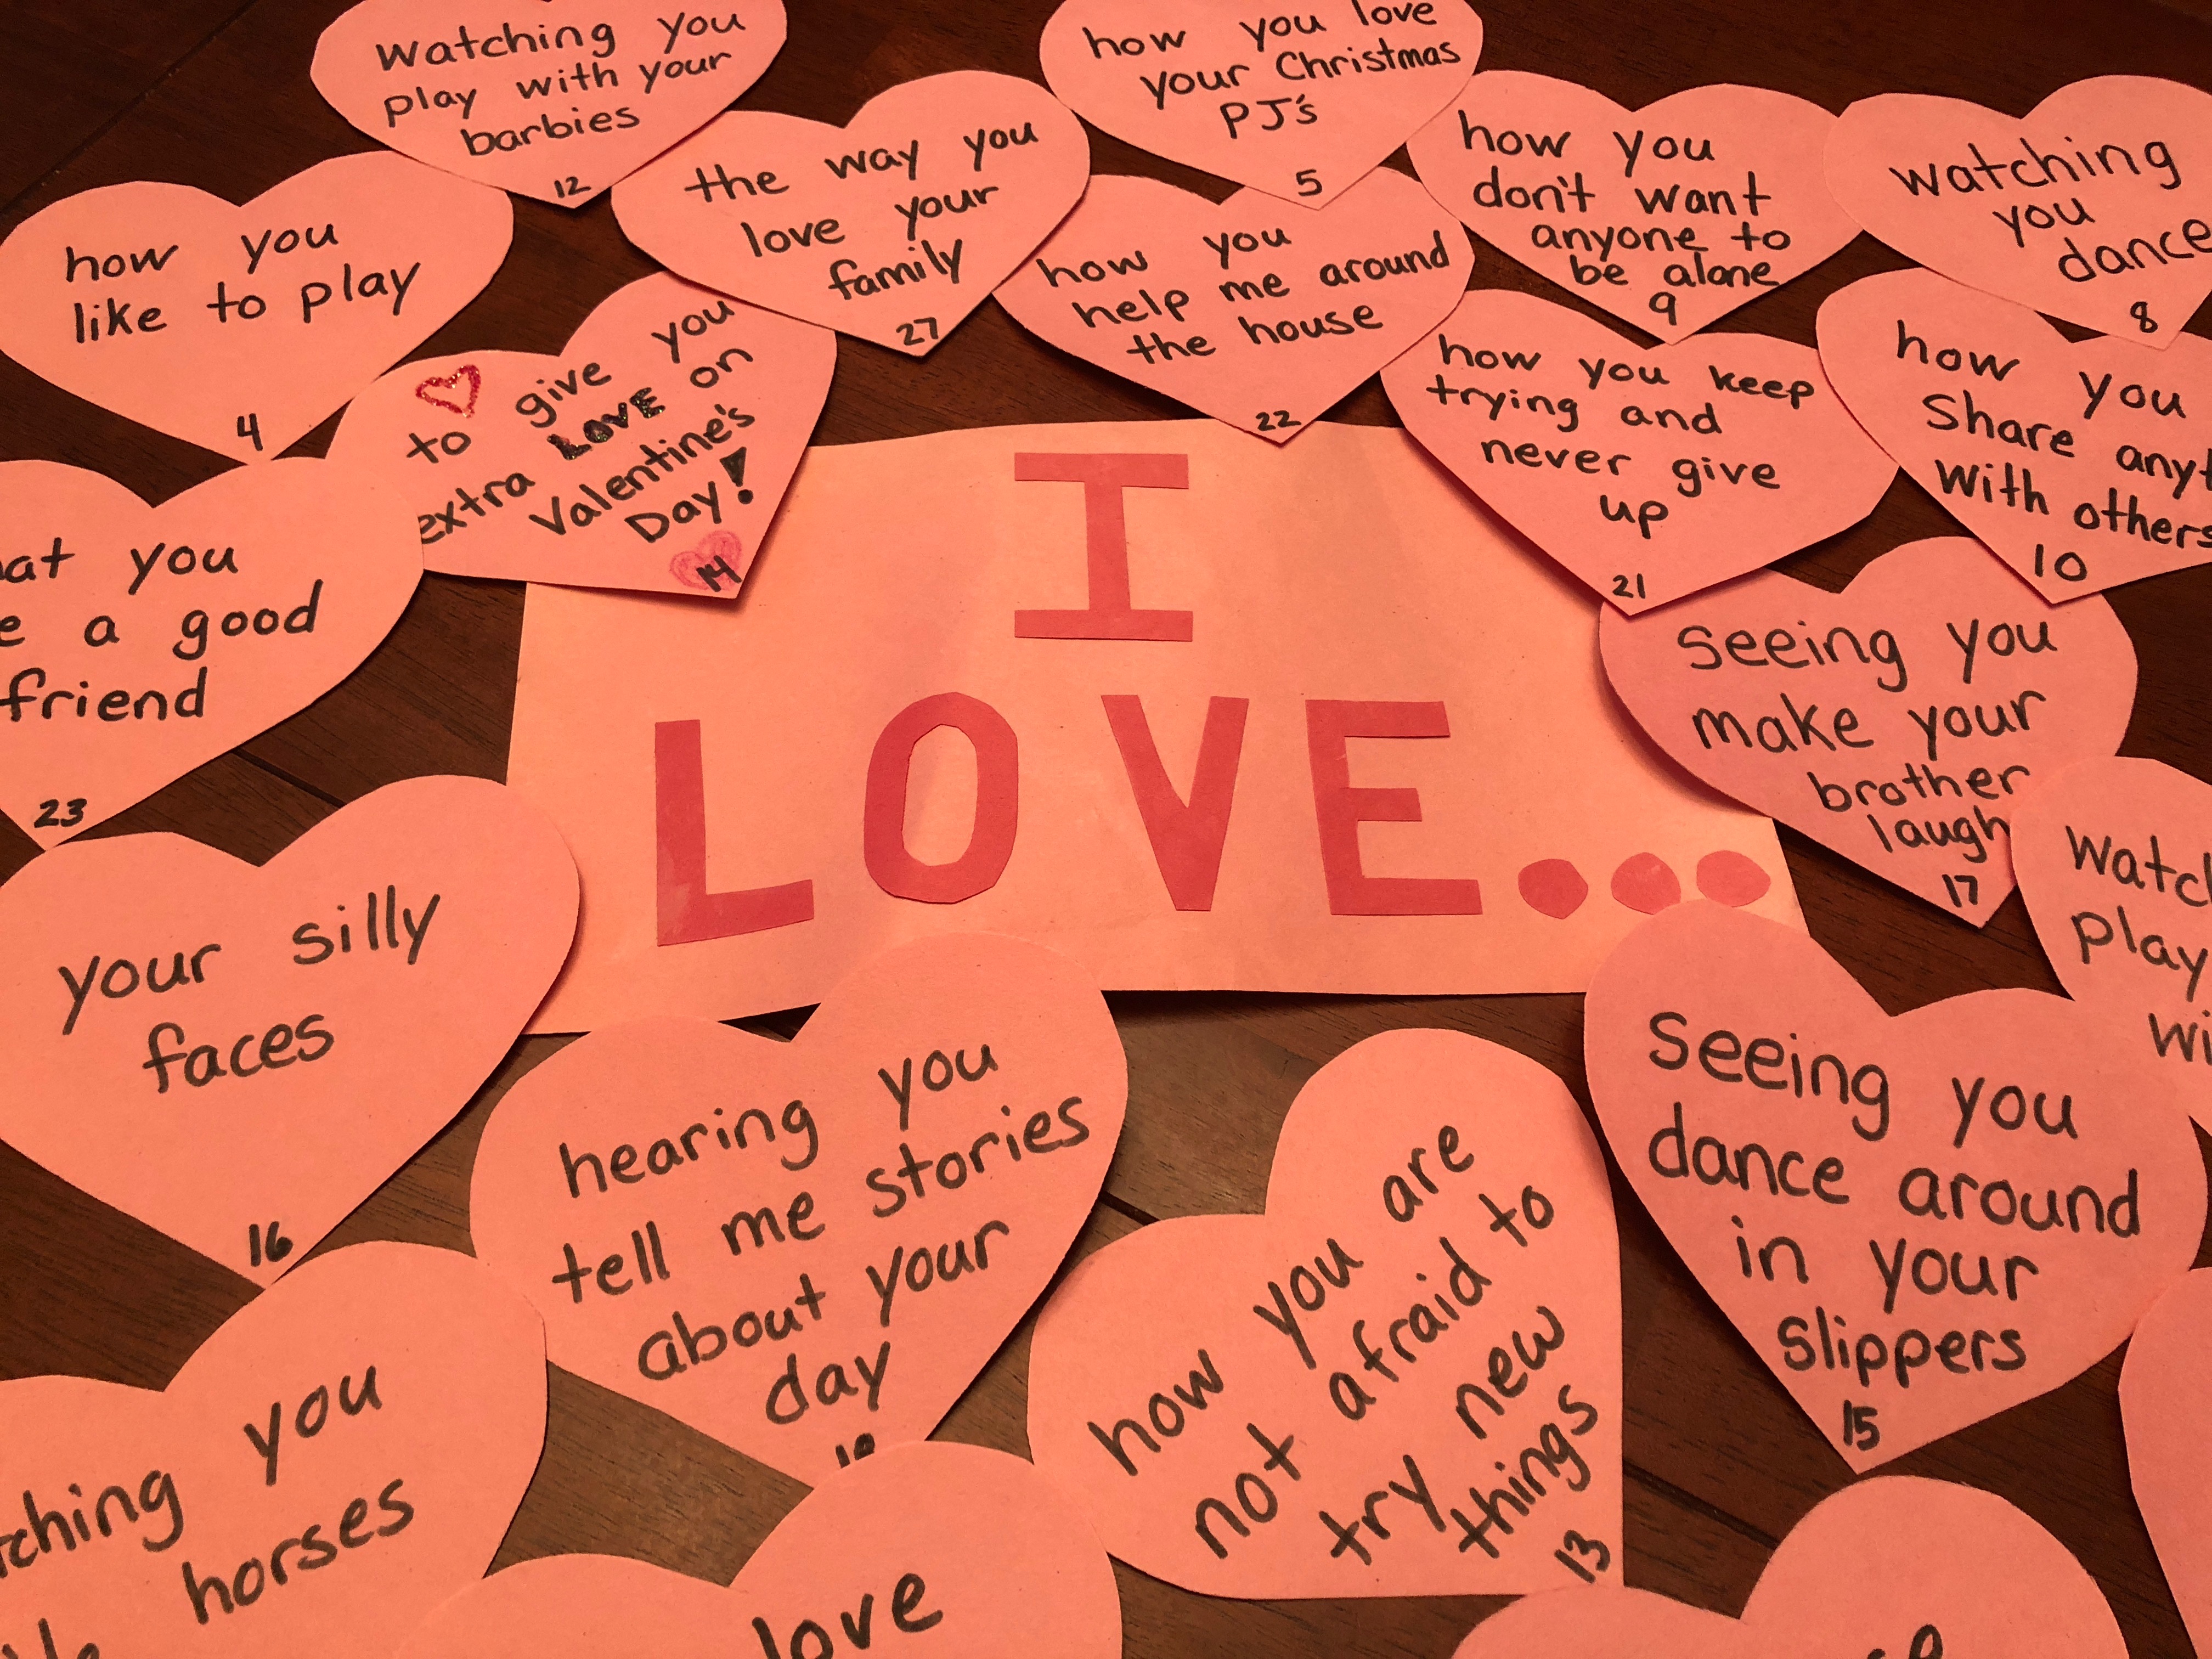 watching you
play with your
barbies
12
how you love
your Christmas
PJ's
5
the way you
love your
family
27
how you
don't want
anyone to
be alone
9
watching
you
dance
8
how you
like to play
4
how you
help me around
the house
22
to give you
extra LOVE on
Valentine's
Day!
14
how you keep
trying and
never give
up
21
how you
Share
with others
10
you
a good
friend
23
I
LOVE...
seeing you
make your
brother
laugh
17
your silly
faces
16
play
hearing you
tell me stories
about your
day
how you are
not afraid to
try new
things
13
Seeing you
dance around
in your
Slippers
15
you
horses
love